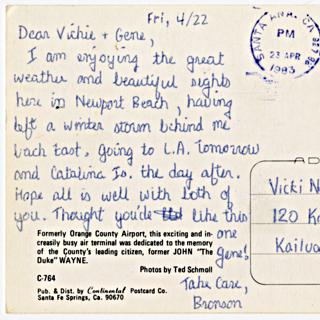 Fri, 4/22
Dear Vickie + Gene,
I am enjoying the great
weather and beautiful sights
here in Newport Beach, having
left a winter storm behind me
back East, going to L.A. tomorrow
and Catalina Is. the day after.
Hope all is well with both of
you. Thought you'de like this
one
Gene!
Take Care,
Bronson
SANTA ANA, CA
PM
23 APR
1983
Vicki N
120 K
Kailua
Formerly Orange County Airport, this exciting and in-
creasily busy air terminal was dedicated to the memory
of the County's leading citizen, former JOHN "The
Duke" WAYNE.
Photos by Ted Schmoll
C-764
Pub. & Dist. by Continental Postcard Co.
Santa Fe Springs, Ca. 90670